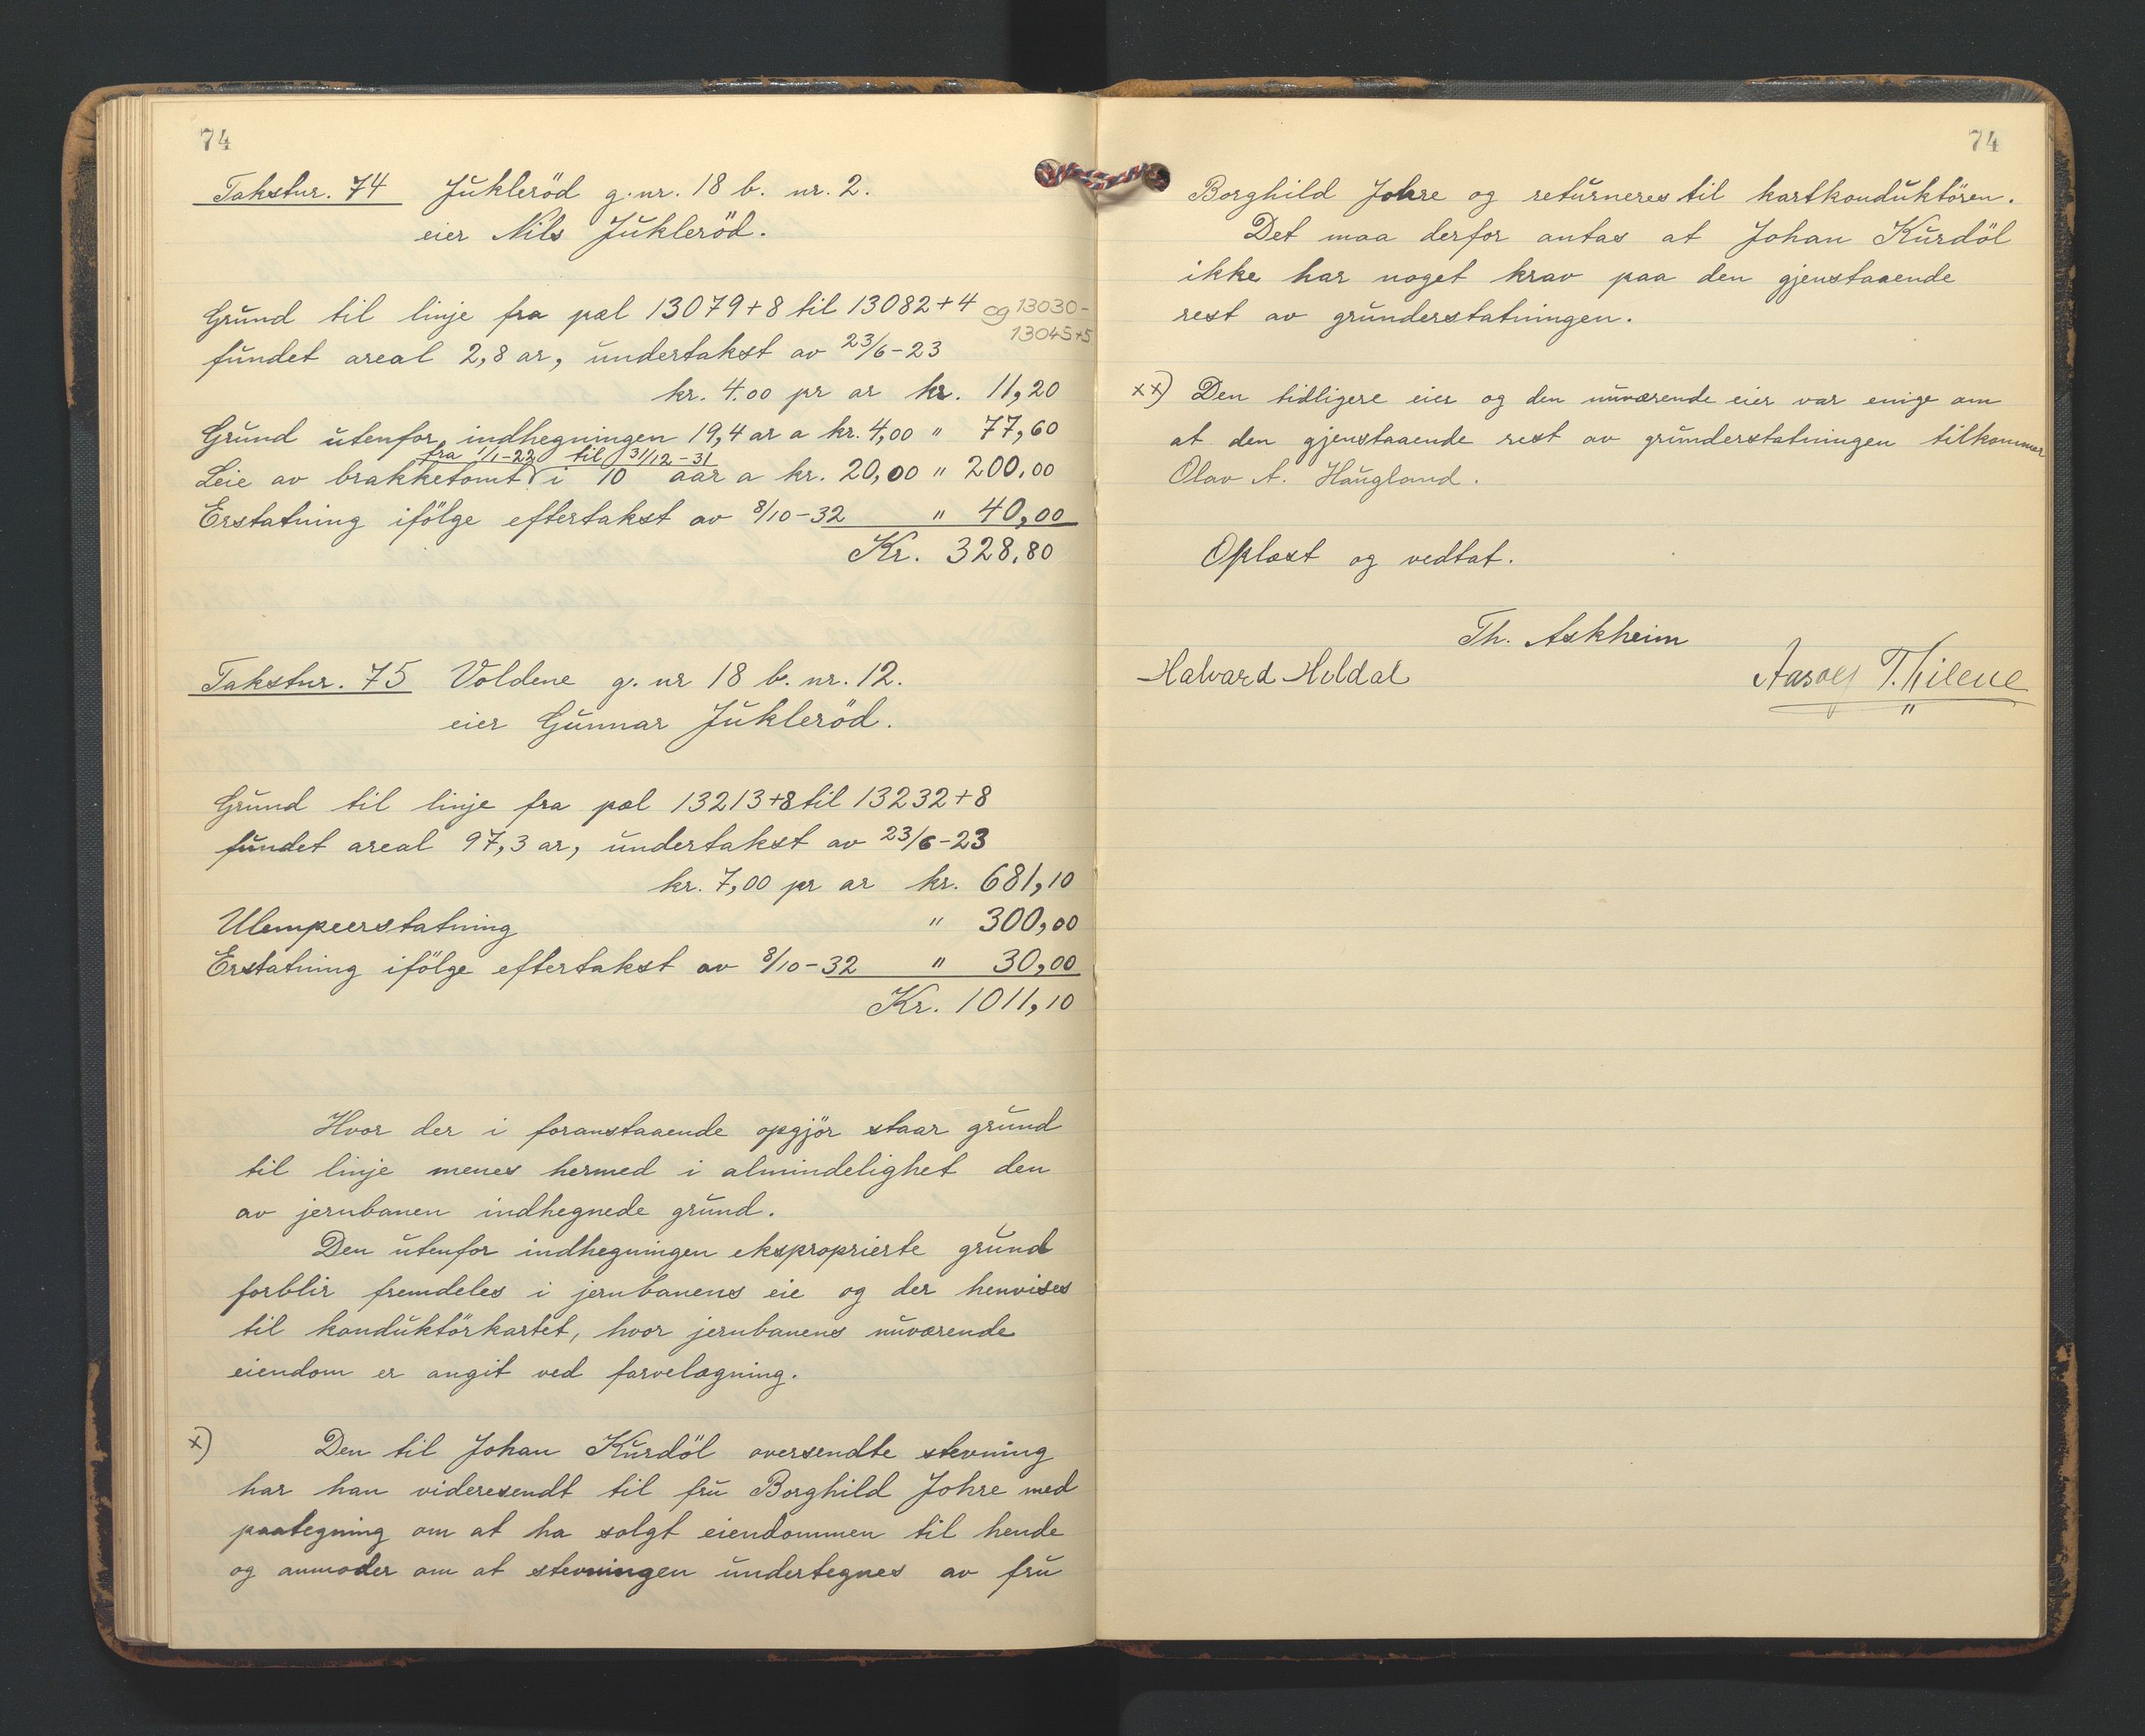 74
Takstnr. 74 Jukleröd g.nr. 18 b. nr. 2.
eier Nils Jukleröd.
Grund til linje fra pæl 13079+8 til 13082+4 og 13030-
13045+5
fundet areal 2,8 ar, undertakst av 23/6-23
kr. 4.00 pr ar kr. 11,20
Grund utenfor indhegningen 19,4 ar a kr. 4,00 " 77,60
fra 1/1-22 til 31/12-31
Leie av brakketomt i 10 aar a kr. 20,00 " 200,00
Erstatning ifölge eftertakst av 8/10-32 " 40,00
Kr. 328,80
Takstnr. 75 Voldene g. nr 18 b. nr. 12.
eier Gunnar Jukleröd.
Grund til linje fra pæl 13213+8 til 13232+8
fundet areal 97,3 ar, undertakst av 23/6-23
kr. 7,00 pr ar kr. 681,10
Ulempeerstatning " 300,00
Erstatning ifölge eftertakst av 8/10-32 " 30,00
Kr. 1011,10
Hvor der i foranstaaende opgjör staar grund
til linje menes hermed i almindelighet den
av jernbanen indhegnede grund.
Den utenfor indhegningen eksproprierte grund
forblir fremdeles i jernbanens eie og der henvises
til konduktörkartet, hvor jernbanens nuværende
eiendom er angit ved farvelægning.
x) Den til Johan Kurdöl oversendte stevning
har han videresendt til fru Borghild Johre med
paategning om at ha solgt eiendommen til hende
og anmoder om at stevningen undertegnes av fru
74
Borghild Johre og returneres til kartkonduktören.
Det maa derfor antas at Johan Kurdöl
ikke har noget krav paa den gjenstaaende
rest av grunderstatningen.
xx) Den tidligere eier og den nuværende eier var enige om
at den gjenstaaende rest av grunderstatningen tilkommer
Olav A. Haugland.
Oplæst og vedtat.
Th. Askheim
Halvard Holdal